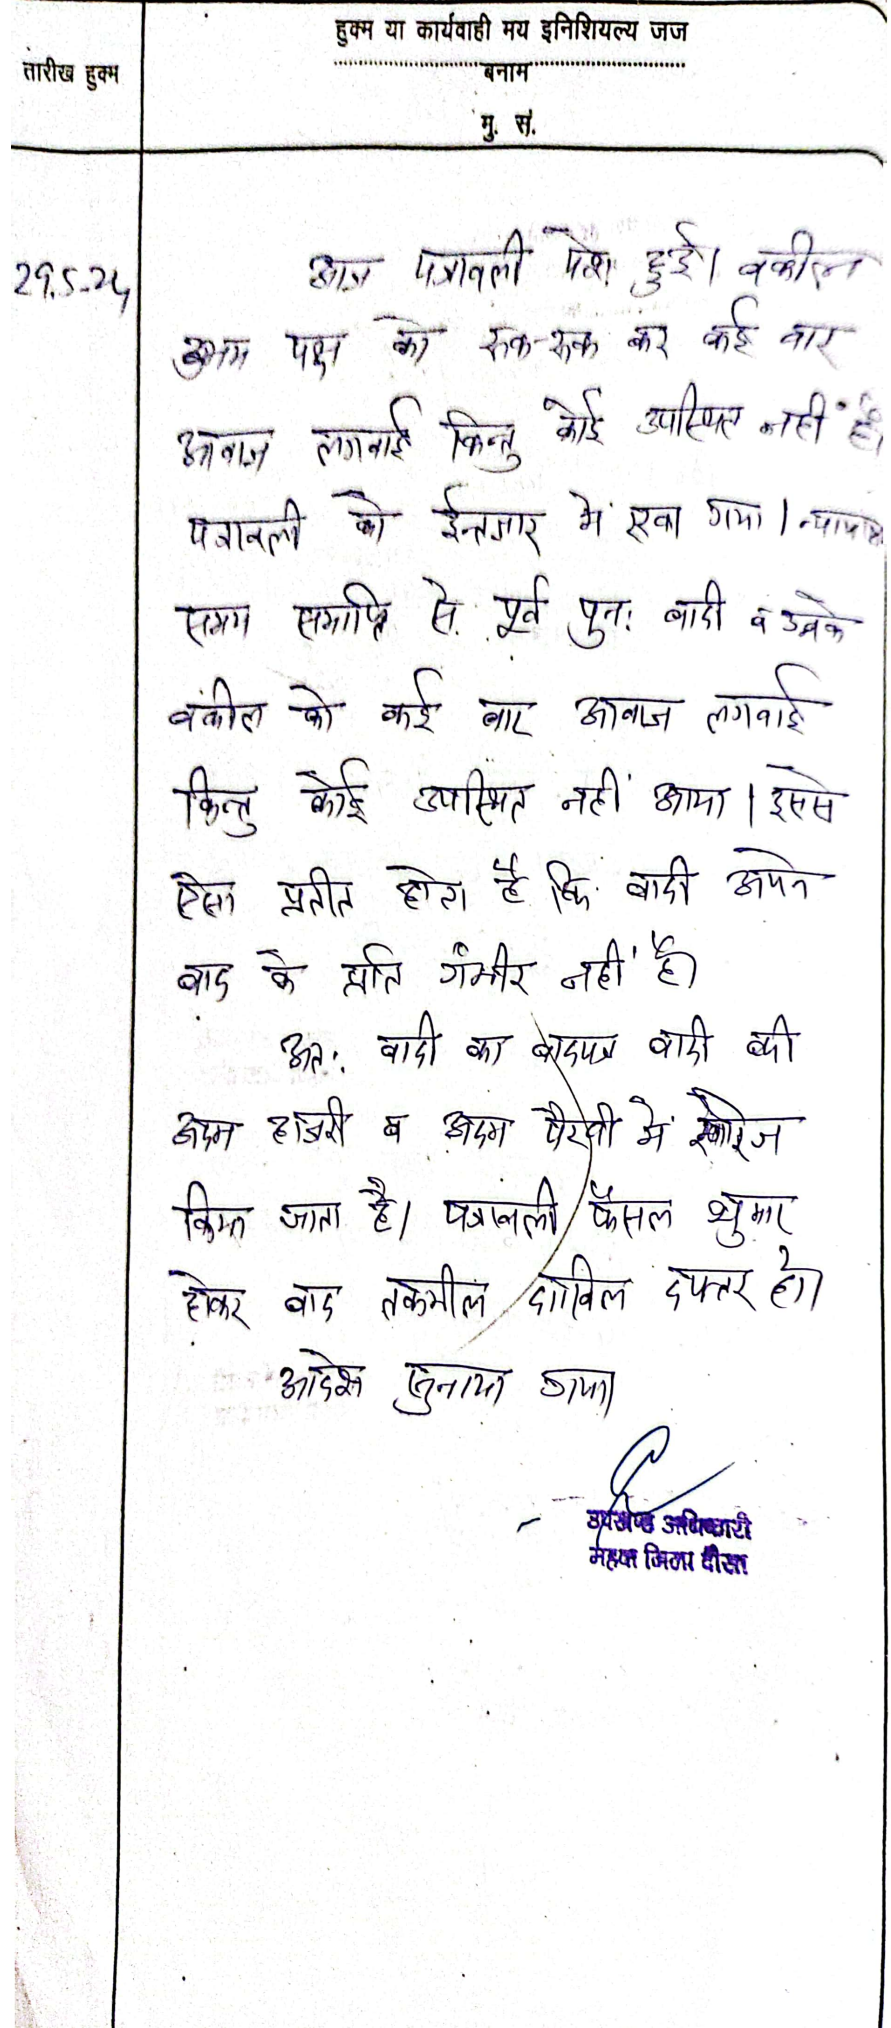 हुक्म या कार्यवाही मय इनिशियल्य जज
तारीख हुक्म
बनाम
मु. सं.
29.5.24
आज पत्रावली पेश हुई। वकील
उभय पक्ष को रुक-रुक कर कई बार
आवाज लगवाई किन्तु कोई उपस्थित नहीं है।
पत्रावली को ईन्तजार में रखा गया। न्यायालय
समय समाप्ति से पूर्व पुनः वादी व उसके
वकील को कई बार आवाज लगवाई
किन्तु कोई उपस्थित नहीं आया। इससे
ऐसा प्रतीत होता है कि वादी अपने
वाद के प्रति गंभीर नहीं है।
अतः वादी का वादपत्र वादी की
अदम हाजरी व अदम पैरवी में खारिज
किया जाता है। पत्रावली फैसल शुमार
होकर बाद तकमील दाखिल दफ्तर हो।
आदेश सुनाया गया।
उपखण्ड अधिकारी
महवा जिला दौसा